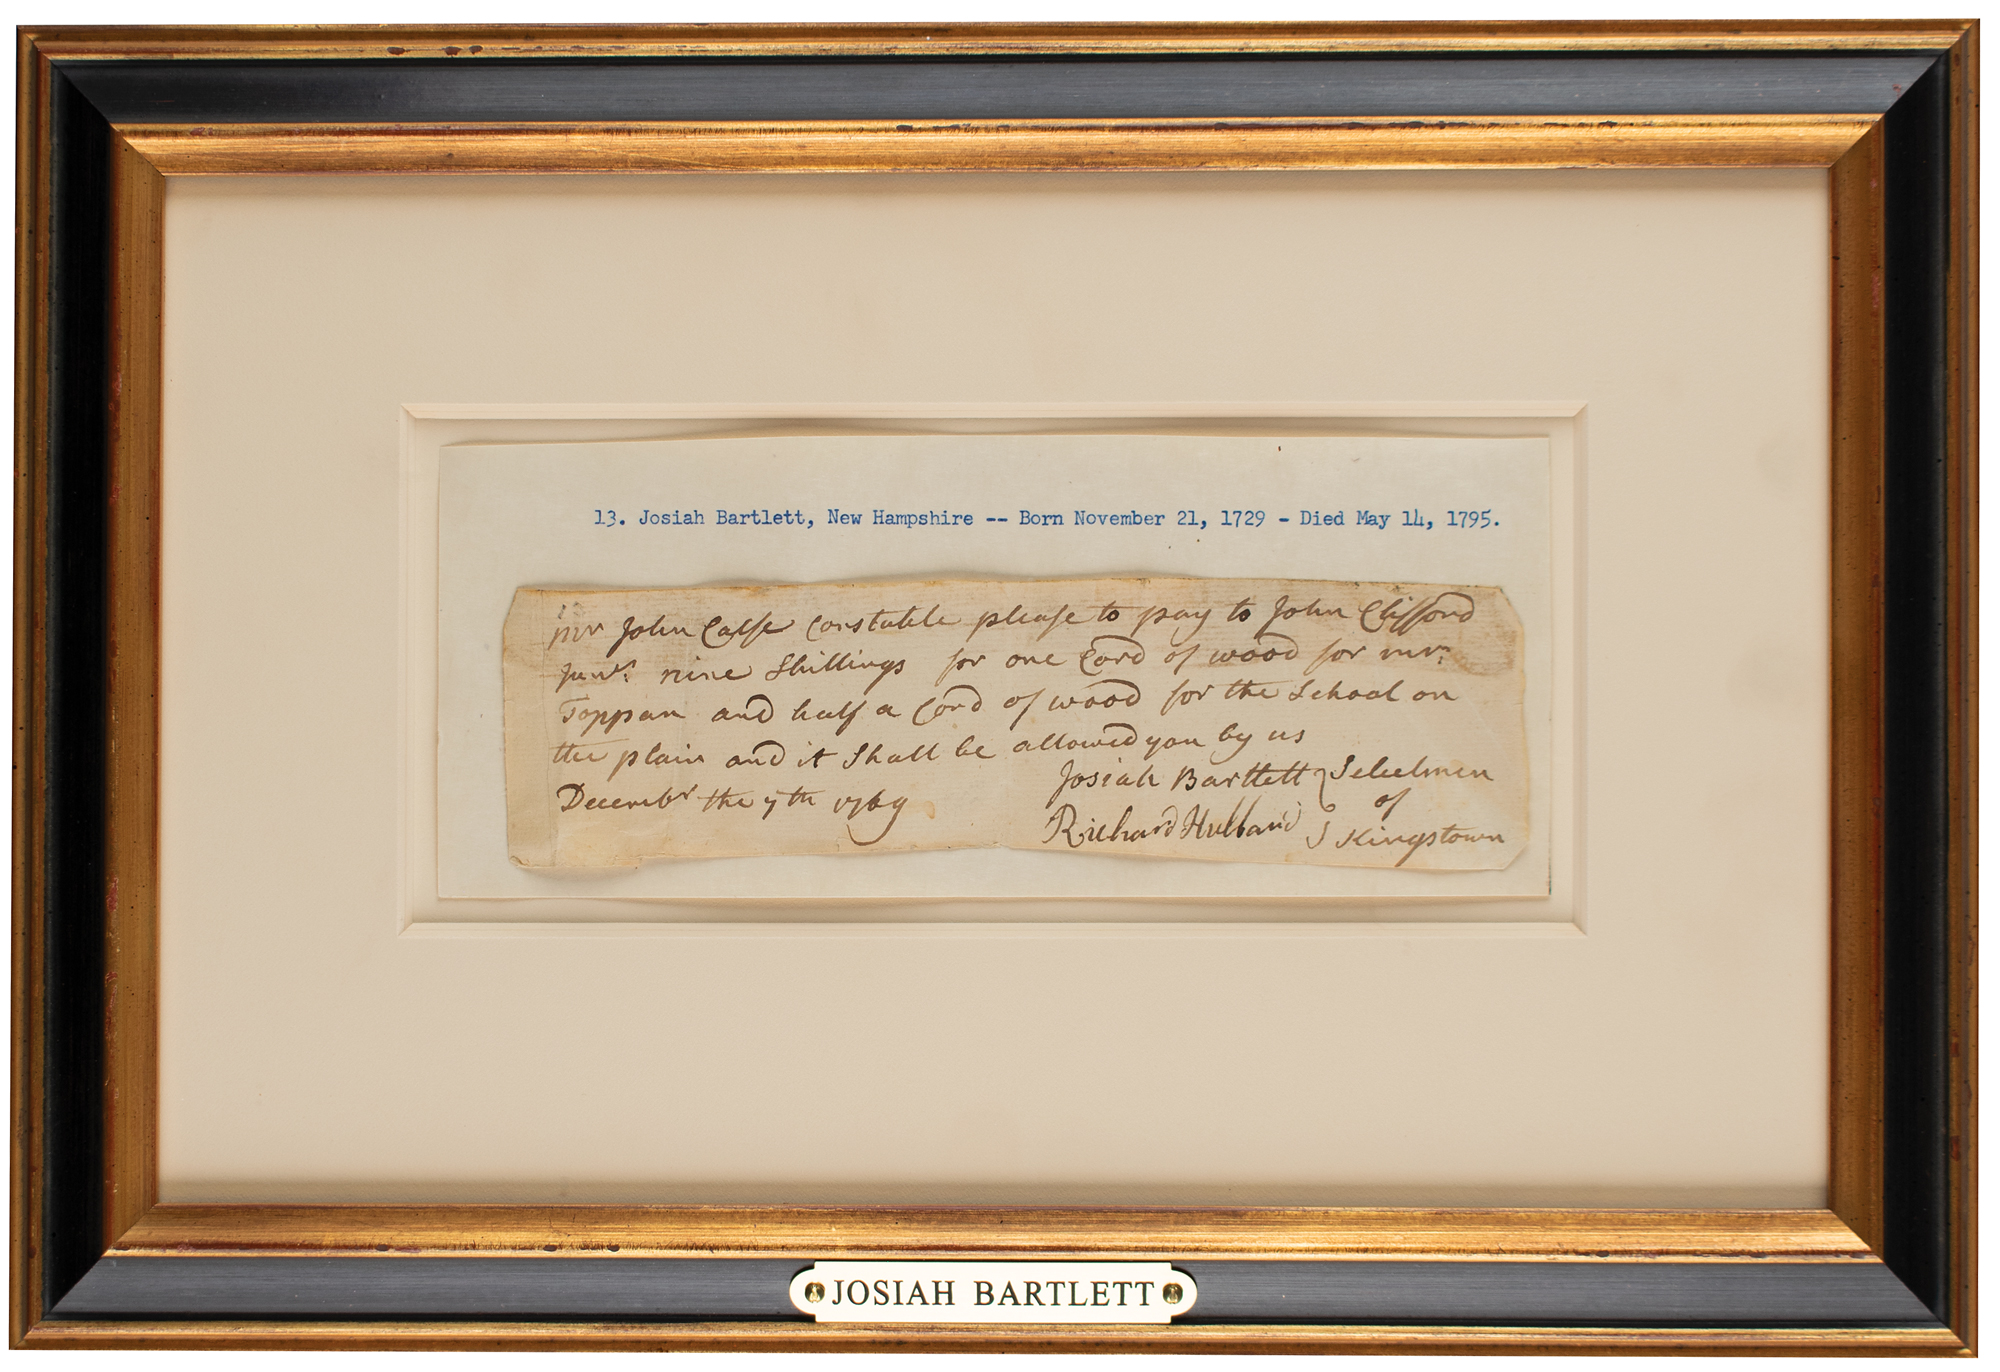 13. Josiah Bartlett, New Hampshire -- Born November 21, 1729 - Died May 14, 1795.
mr John Calfe Constable please to pay to John Clifford
Junr: nine Shillings for one Cord of wood for mr:
Toppan and half a Cord of wood for the School on
the plain and it Shall be allowed you by us
Decembr the 7th 1769
Josiah Bartlett } Selectmen
of
Richard Hubbard } Kingstown
JOSIAH BARTLETT